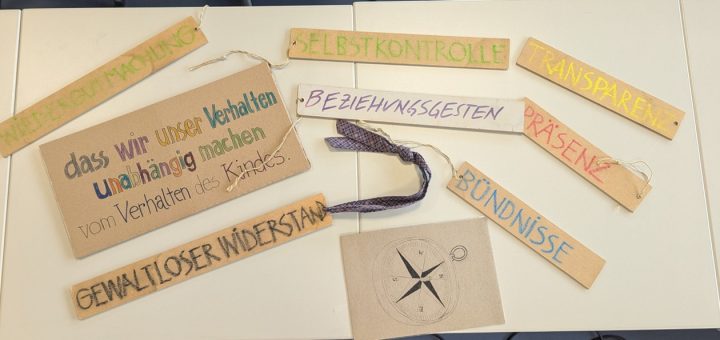 WIEDERGUTMACHUNG
SELBSTKONTROLLE
TRANSPARENZ
dass wir unser Verhalten
unabhängig machen
vom Verhalten des Kindes.
BEZIEHUNGSGESTEN
PRÄSENZ
BÜNDNISSE
GEWALTLOSER WIDERSTAND